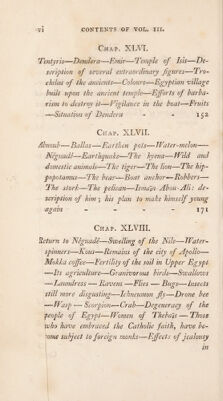 vi CONTENTS OF VOL. III.
CHAP. XLVI.
Tentyris—Dendera—Emir—Temple of Isis—De-
scription of several extraordinary figures—Tro-
chilus of the ancients—Colours—Egyptian village
built upon the ancient temple—Efforts of barba-
rism to destroy it—Vigilance in the boat—Fruits
—Situation of Dendera - - 152
CHAP. XLVII.
—Ballas—Earthen pots—Water-melon—
Néguadé—Earthquake—The hyena—Wild and
domestic animals—The tiger—The lion—The hip-
popotamus—The bear—Boat anchor—Robbers—
The stork—The pelican—Ismain Abou-Ali: de-
scription of him; his plan to make himself young
again - - - 171
CHAP. XLVIII.
Return to Néguadé—Swelling of the Nile—Water-
spinners—Kous—Remains of the city of Apollo—
Mokka coffee—Fertility of the soil in Upper Egypt
—Its agriculture—Granivorous birds—Swallows
—Laundress—Ravens—Flies—Bugs—Insects
still more disgusting—Ichneumon fly—Drone bee
—Wasp—Scorpion—Crab—Degeneracy of the
people of Egypt—Women of Thebaïs—Those
who have embraced the Catholic faith, have be-
come subject to foreign monks—Effects of jealousy
in